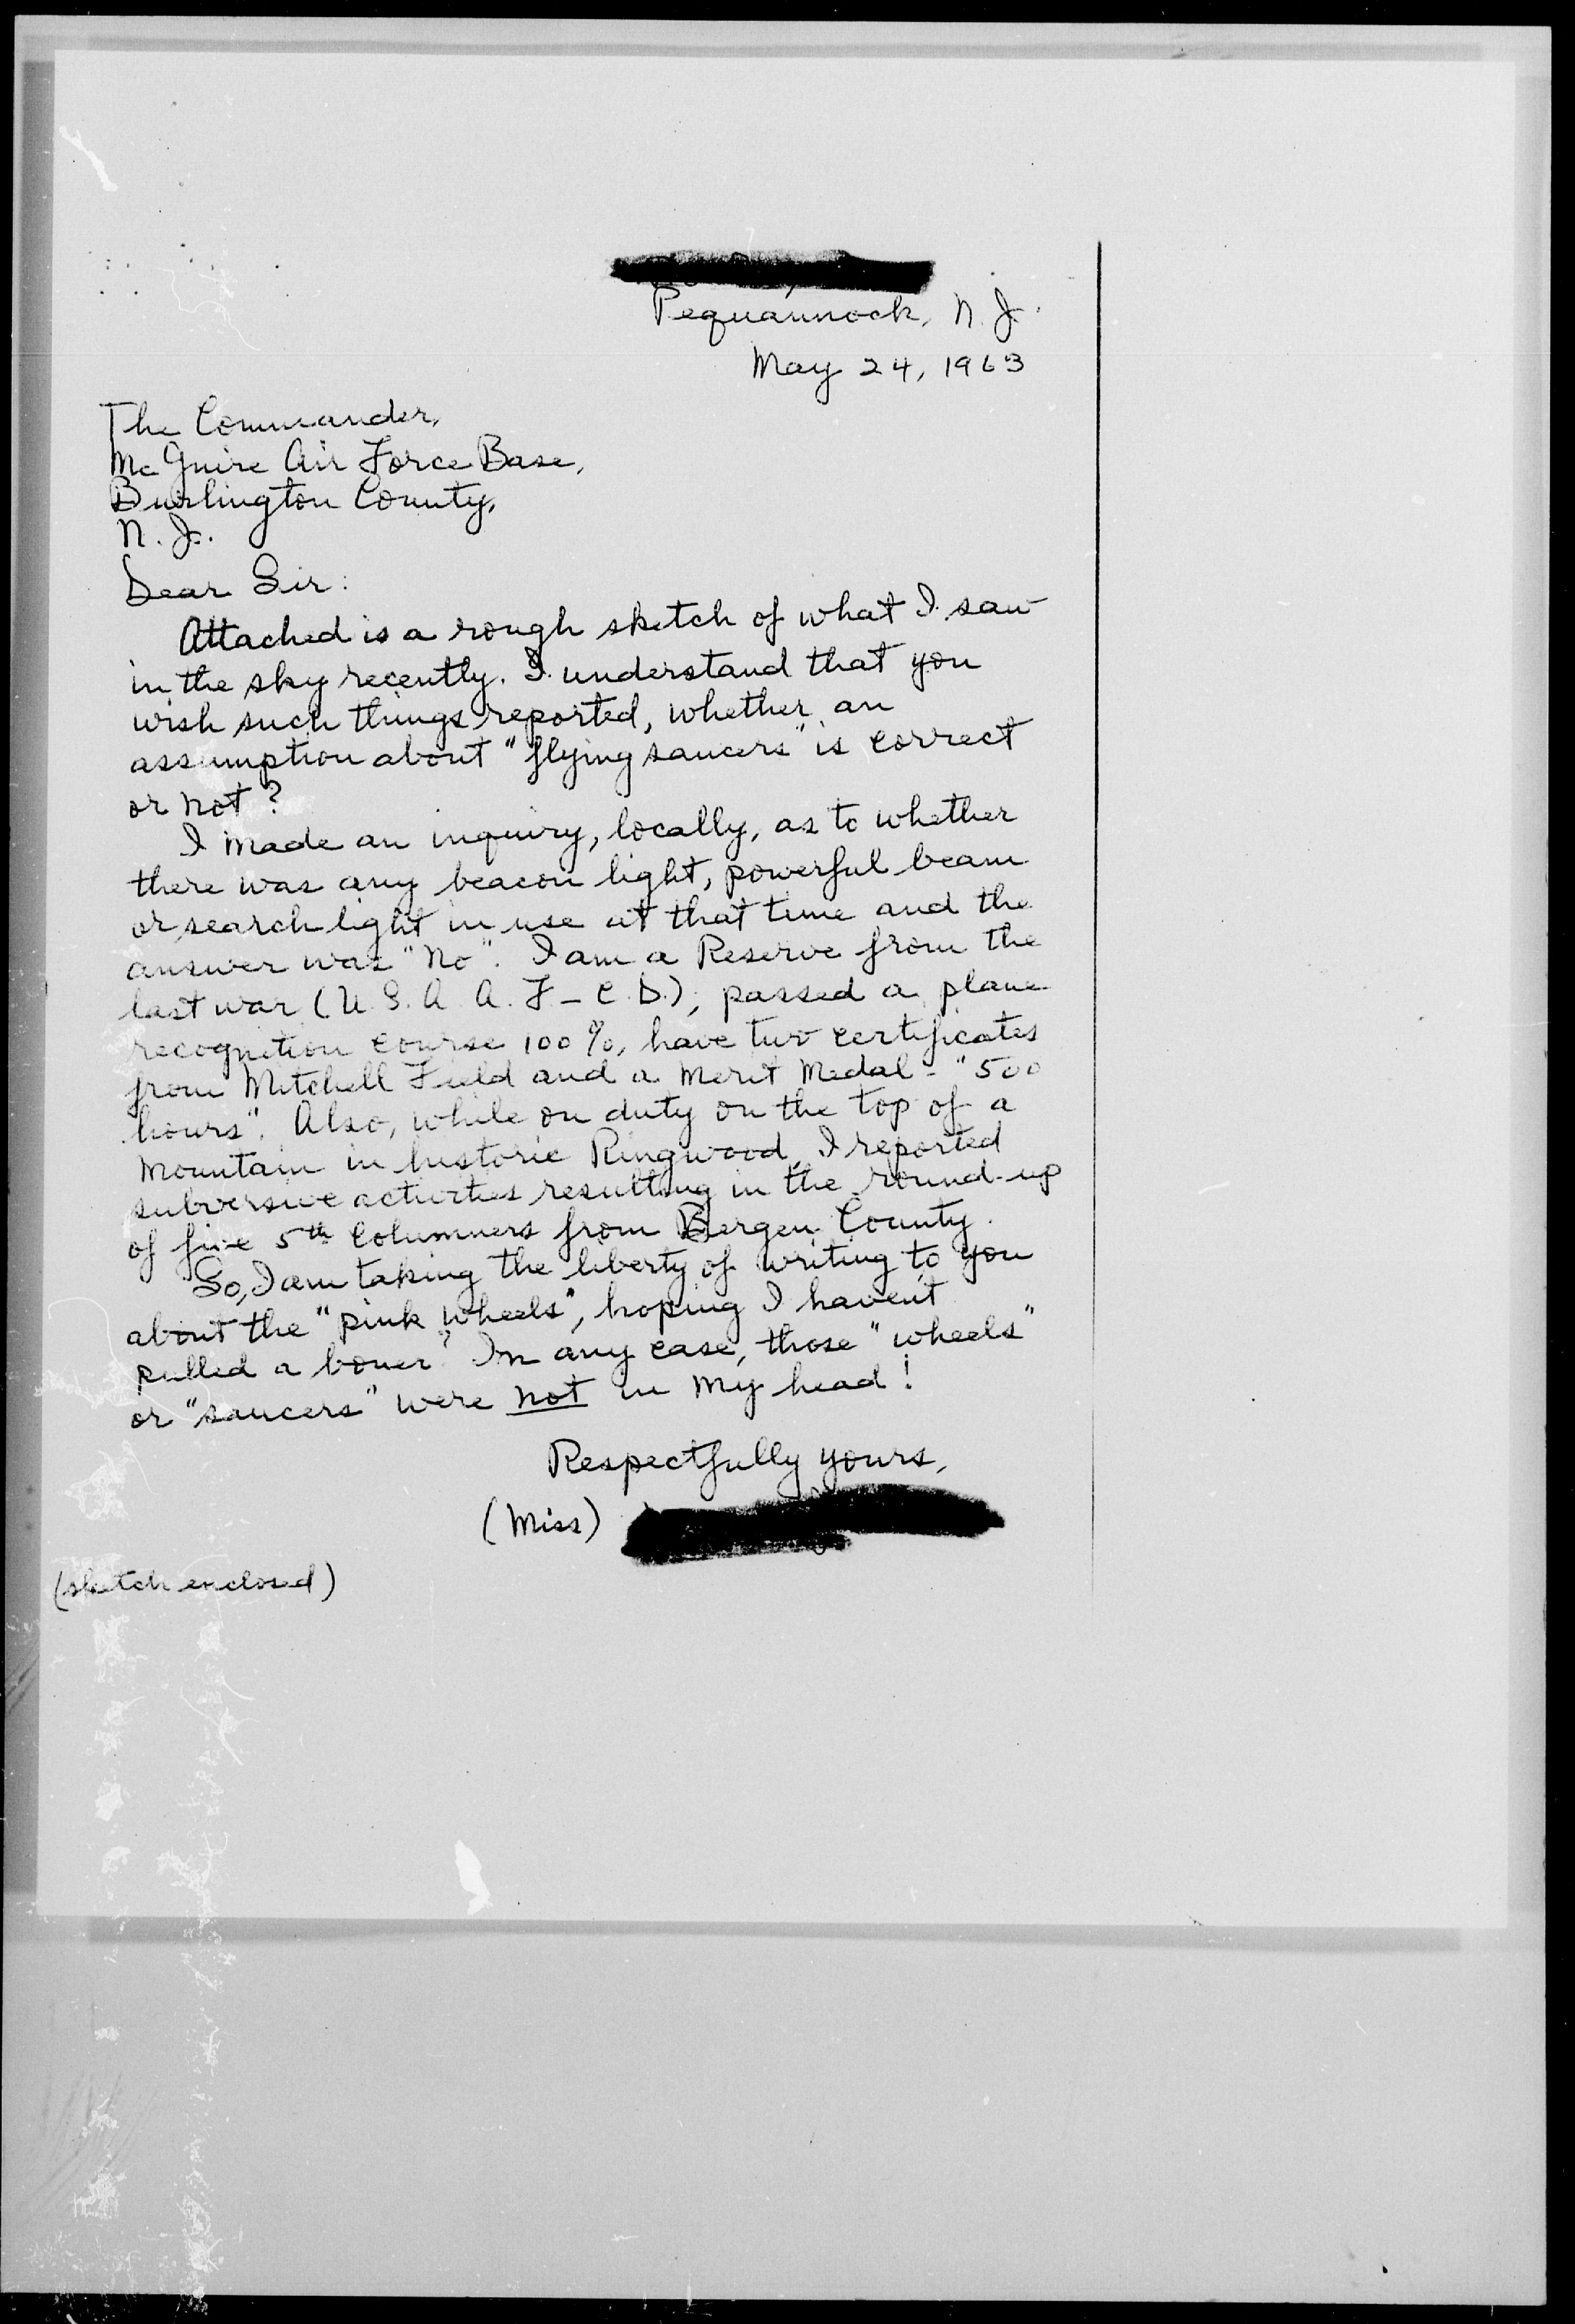 Pequannock, N. J.
May 24, 1963
The Commander,
Mc Guire Air Force Base,
Burlington County,
N. J.
Dear Sir:
Attached is a rough sketch of what I saw
in the sky recently. I understand that you
wish such things reported, whether an
assumption about "flying saucers" is correct
or not?
I made an inquiry, locally, as to whether
there was any beacon light, powerful beam
or searchlight in use at that time and the
answer was "No". I am a Reserve from the
last war (U. S. A. A. F - C. D.), passed a plane
recognition course 100%, have two certificates
from Mitchell Field and a Merit Medal - "500
hours". Also, while on duty on the top of a
mountain in historic Ringwood, I reported
subversive activities resulting in the round-up
of five 5th Columners from Bergen County.
So, I am taking the liberty of writing to you
about the "pink wheels", hoping I haven't
pulled a boner? In any case, those "wheels"
or "saucers" were not in my head!
Respectfully yours,
(Miss)
(sketch enclosed)